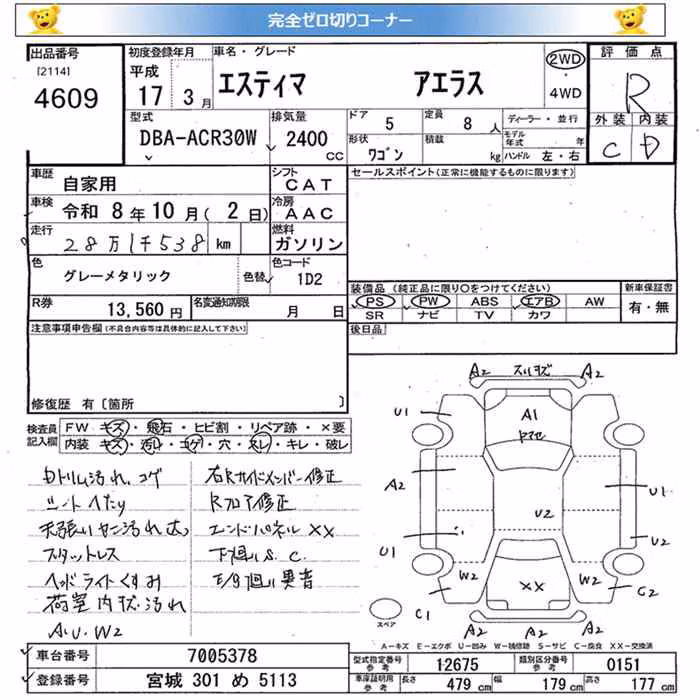 完全ゼロ切りコーナー
出品番号
[2114]
4609
初度登録年月
平成
17 3月
車名・グレード
エスティマ アエラス
2WD
4WD
評価点
R
外装 内装
C D
型式
DBA-ACR30W
排気量
2400
CC
ドア 5
定員 8人
形状 ワゴン
積載 kg
ディーラー・並行
モデル年式 年
ハンドル 左・右
車歴
自家用
シフト
CAT
車検 令和 8年10月( 2日)
冷房
AAC
走行
28万1千538 km
燃料
ガソリン
色
グレーメタリック
色替
色コード
1D2
R券
13,560円
名変通知期限
月 日
セールスポイント(正常に機能するものに限ります)
装備品 (純正品に限り〇をつけてください)
新車保証書
PS PW ABS エアB AW
有・無
SR ナビ TV カワ
後日品
注意事項申告欄(不具合内容等は具体的に記入して下さい)
修復歴 有〔箇所 〕
検査員
記入欄
FW キズ・飛石・ヒビ割・リペア跡・×要
内装 キズ・汚れ・コゲ・穴・スレ・キレ・破レ
内トリム汚れ、コゲ
シートへたり
天張りヤニ汚れ大
スタットレス
ヘッドライトくすみ
荷室内状汚れ
A.U.W2
右Rサイドメンバー修正
Rフロア修正
エンドパネルXX
下廻りS.C.
E/g廻り異音
A2 スレキズ A2
U1
A1
ヤマセ
A2
U1
U2
U1
U2
W2
W2
XX
C1
C2
A2 A2 A2
スペア
A-キズ E-エクボ U-凹み W-補修跡 S-サビ C-腐食 XX-交換済
車台番号
7005378
登録番号
宮城 301 め 5113
型式指定番号
参考
12675
類別区分番号
参考
0151
車庫証明用
参考
長さ 479cm
幅 179cm
高さ 177cm